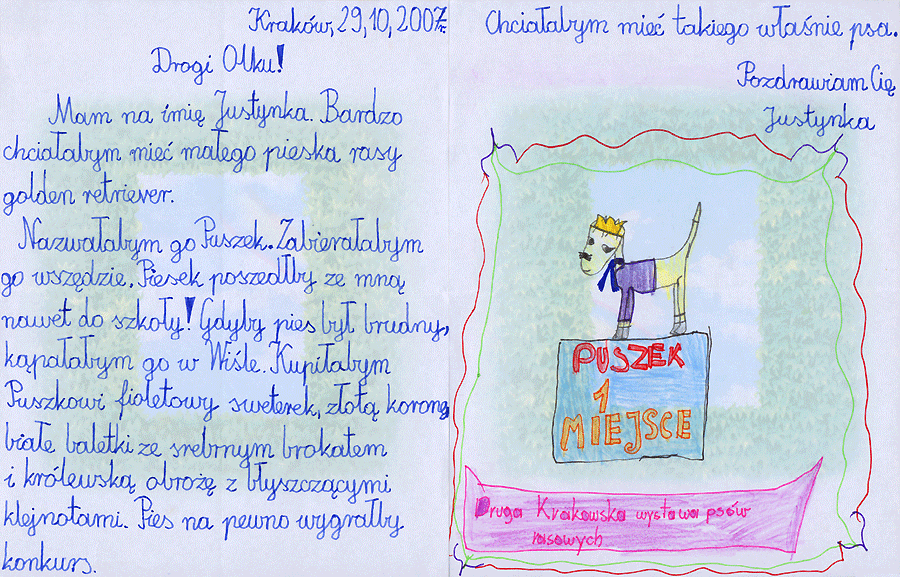 Kraków, 29,10, 2007r.
Drogi Olku!
Mam na imię Justynka. Bardzo
chciałabym mieć małego pieska rasy
golden retriever.
Nazwałabym go Puszek. Zabierałabym
go wszędzie. Piesek poszedłby ze mną
nawet do szkoły! Gdyby pies był brudny,
kąpałabym go w Wiśle. Kupiłabym
Puszkowi fioletowy sweterek, złotą koronę,
białe baletki ze srebrnym brokatem
i królewską obrożę z błyszczącymi
klejnotami. Pies na pewno wygrałby
konkurs.
Chciałabym mieć takiego właśnie psa.
Pozdrawiam Cię
Justynka
PUSZEK
1
MIEJSCE
Druga Krakowska wystawa psów
rasowych